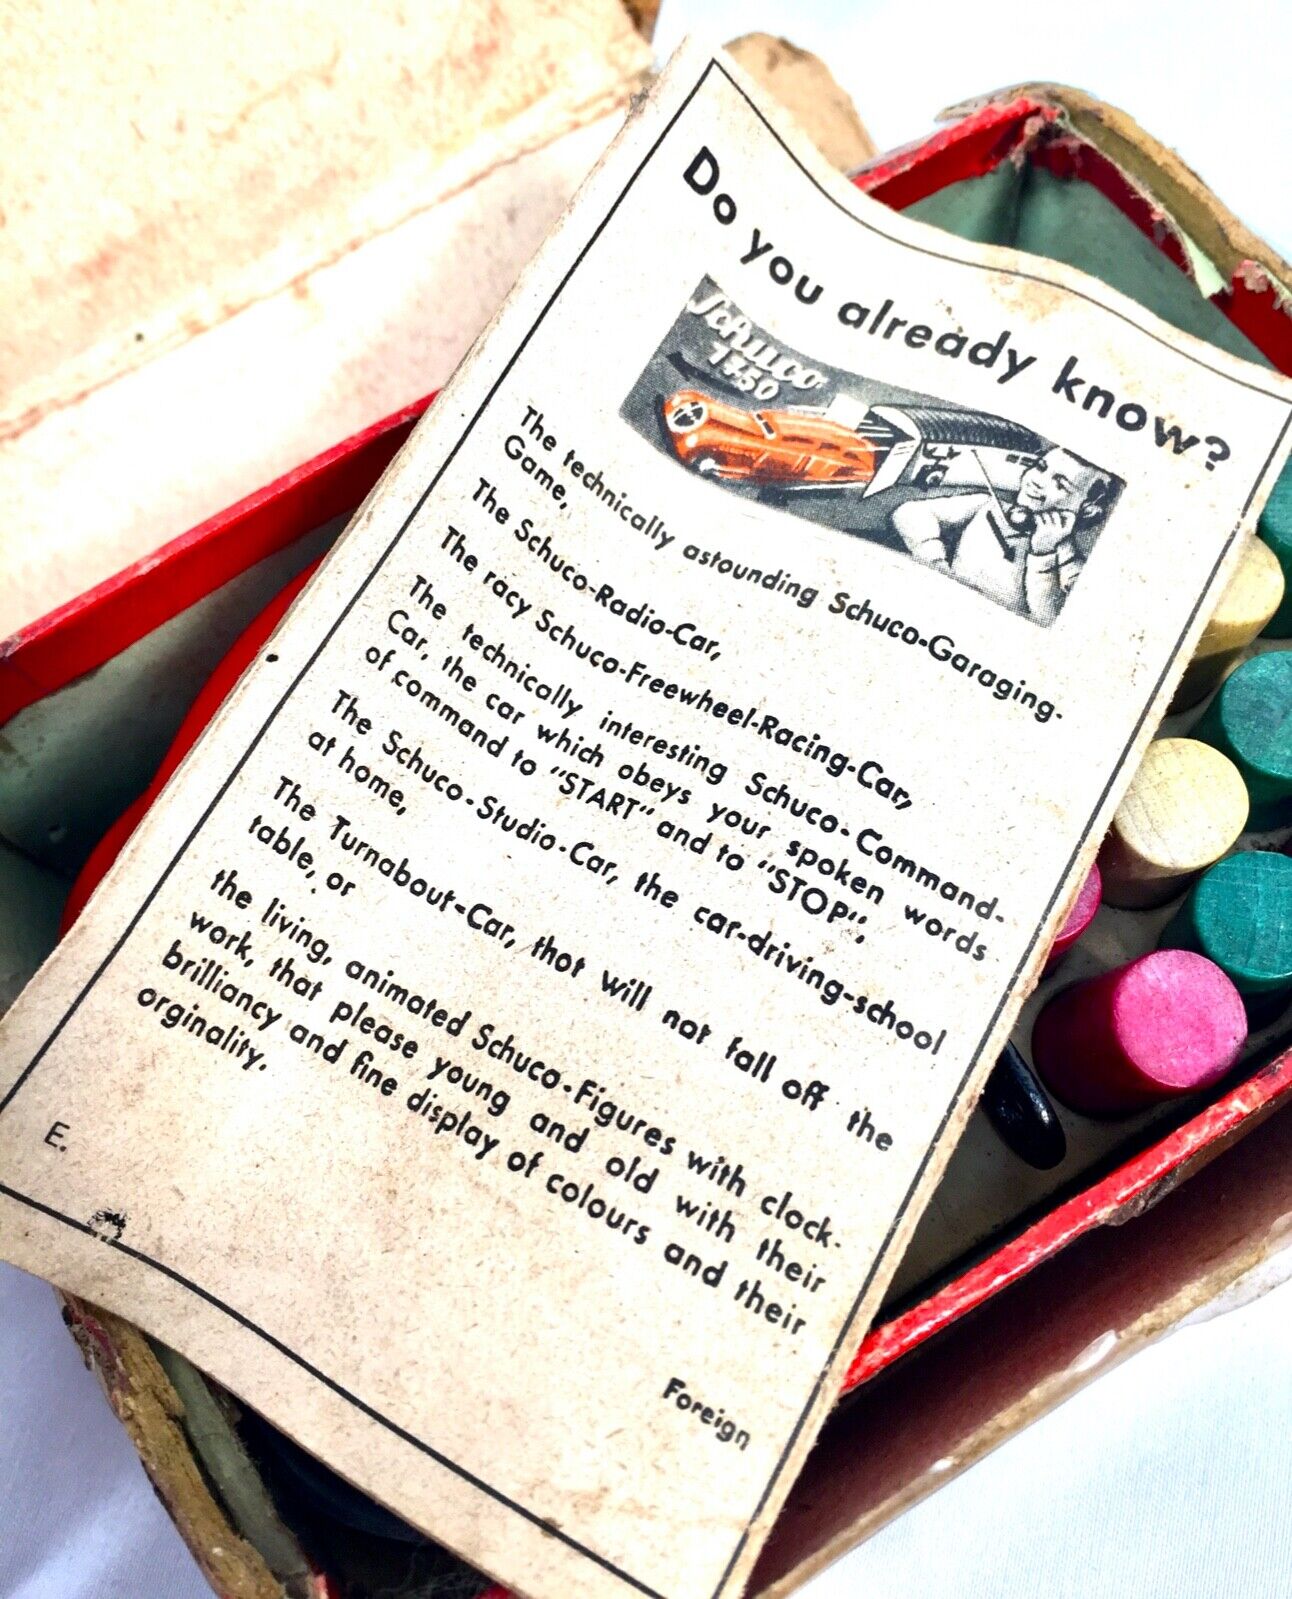 Do you already know?
Schuco
1750
The technically astounding Schuco-Garaging-
Game,
The Schuco-Radio-Car,
The racy Schuco-Freewheel-Racing-Car,
The technically interesting Schuco-Command-
Car, the car which obeys your spoken words
of command to "START" and to "STOP",
The Schuco-Studio-Car, the car-driving-school
at home,
The Turnabout-Car, that will not fall off the
table, or
the living, animated Schuco-Figures with clock-
work, that please young and old with their
brilliancy and fine display of colours and their
orginality.
E.
Foreign